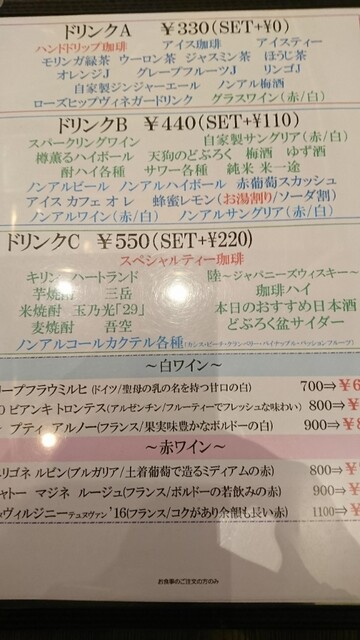 ドリンクA ¥330(SET+¥0)
ハンドドリップ珈琲 アイス珈琲 アイスティー
モリンガ緑茶 ウーロン茶 ジャスミン茶 ほうじ茶
オレンジJ グレープフルーツJ リンゴJ
自家製ジンジャーエール ノンアル梅酒
ローズヒップヴィネガードリンク グラスワイン(赤/白)
ドリンクB ¥440(SET+¥110)
スパークリングワイン 自家製サングリア(赤/白)
樽薫るハイボール 天狗のどぶろく 梅酒 ゆず酒
酎ハイ各種 サワー各種 純米 米一途
ノンアルビール ノンアルハイボール 赤葡萄スカッシュ
アイス カフェ オ レ 蜂蜜レモン(お湯割り/ソーダ割)
ノンアルワイン(赤/白) ノンアルサングリア(赤/白)
ドリンクC ¥550(SET+¥220)
スペシャルティー珈琲
キリン ハートランド 陸〜ジャパニーズウィスキー〜
芋焼酎 三岳 珈琲ハイ
米焼酎 玉乃光「29」 本日のおすすめ日本酒
麦焼酎 吾空 どぶろく盆サイダー
ノンアルコールカクテル各種(カシス・ピーチ・クランベリー・パイナップル・パッションフルーツ)
〜白ワイン〜
ープフラウミルヒ(ドイツ/聖母の乳の名を持つ甘口の白) 700⇒¥6
ビアンキ トロンテス(アルゼンチン/フルーティーでフレッシュな味わい) 800⇒¥
プティ アルノー(フランス/果実味豊かなボルドーの白) 900⇒¥8
〜赤ワイン〜
リゴネ ルビン(ブルガリア/土着葡萄で造るミディアムの赤) 800⇒¥
トー マジネ ルージュ(フランス/ボルドーの若飲みの赤) 900⇒¥
ヴィルジニーテュヌヴァン'16(フランス/コクがあり余韻も長い赤) 1100⇒¥
お食事のご注文の方のみ